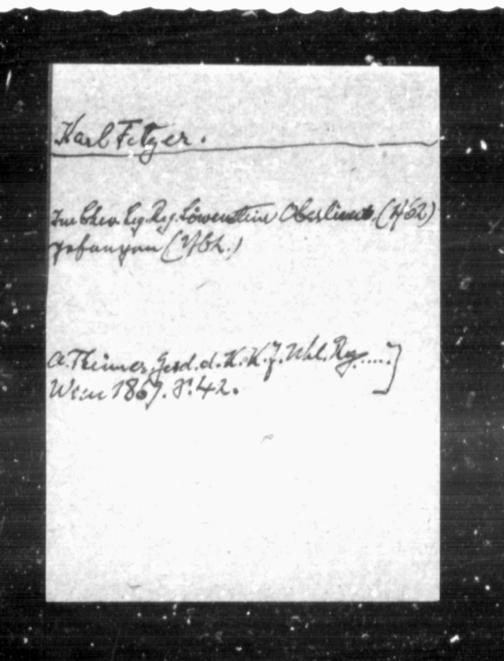 Karl Fetzer.
Im Chev. Leg. Rg. Löwenstein Oberlieut. (1762)
gefangen (1762.)
A. Theimer, Gesch. d. K. K. 7. Uhl. Rg. ....]
Wien 1869. S. 42.